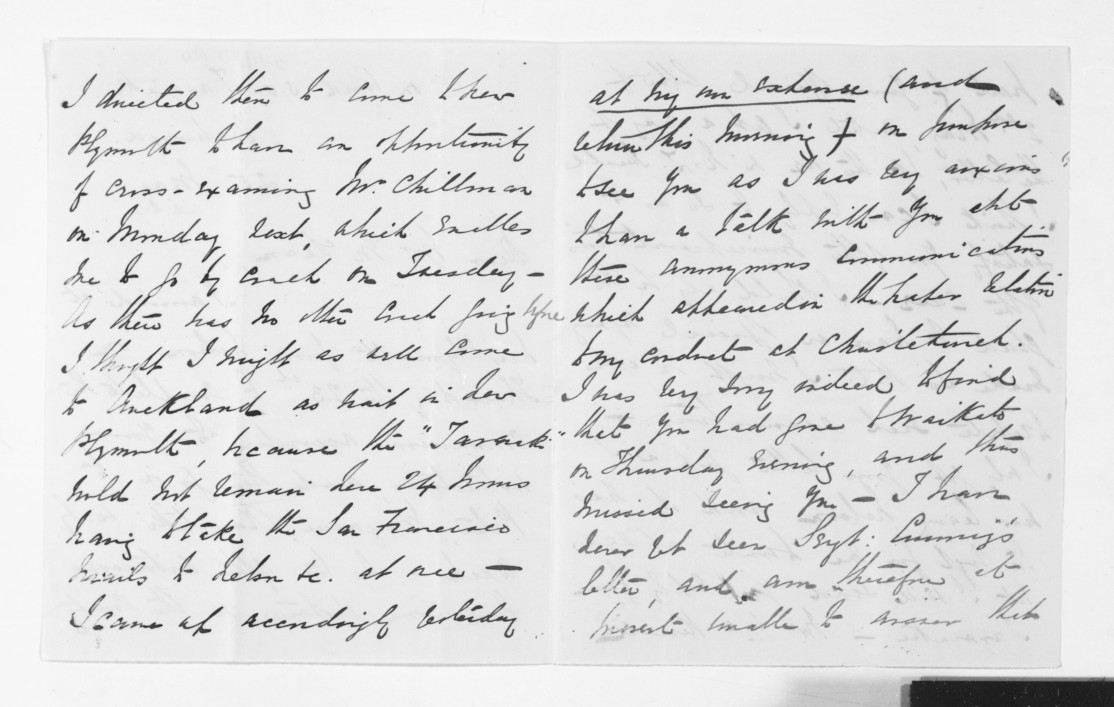 I directed them to come to New
Plymouth to have an opportunity
of cross-examining Mr Chillman
on Monday next, which enables
me to go by coach on Tuesday —
As there was no other coach going before
I thought I might as well come
to Auckland as wait in New
Plymouth, because the "Taranaki"
would not remain here 24 hours
having to take the San Francisco
mails to Nelson &c. at once —
I came up accordingly yesterday
at my own expense (and
return this morning) on purpose
to see you as I was very anxious
to have a talk with you abt
these anonymous communications
which appeared in the paper relative
to my conduct at Christchurch.
I was very sorry indeed to find
that you had gone to Waikato
on Thursday evening, and thus
missed seeing you — I have
never yet seen Sergt: 
letter, and am therefore at
present unable to answer that